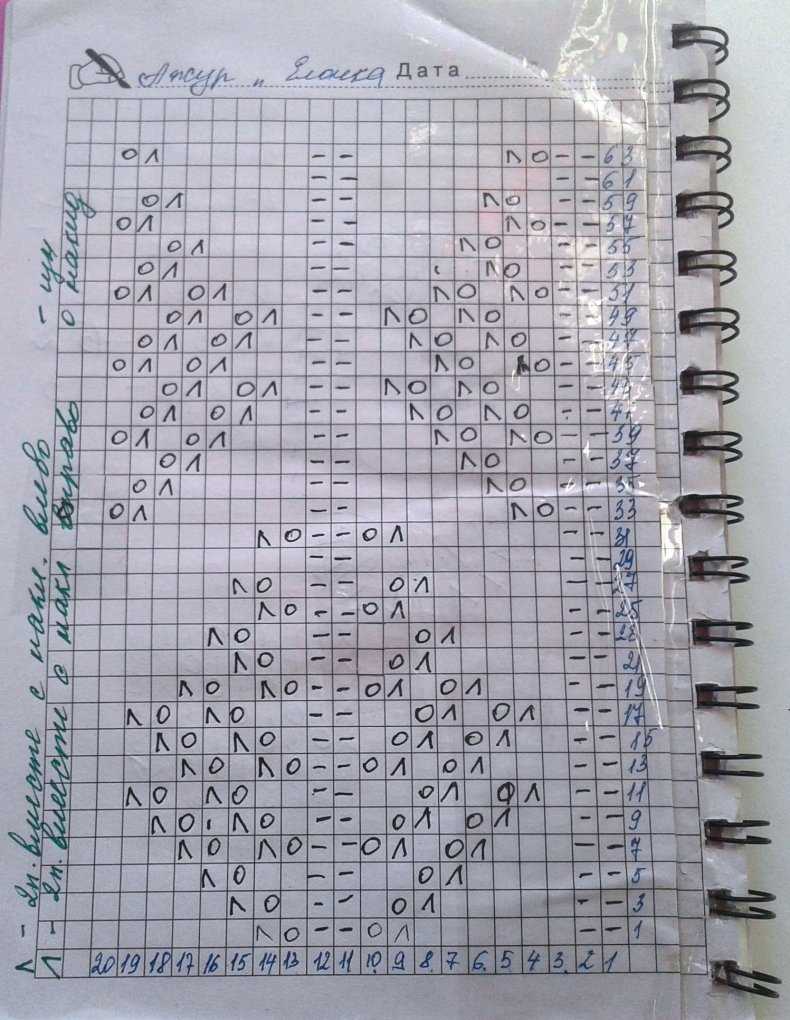 Ажур „ Елочка Дата
O Λ - - Λ O - - 63
- - - - 61
O Λ - - Λ O - - 59
O Λ - - Λ O - - 57
O Λ - - Λ O - - 55
O Λ - - Λ O - - 53
O Λ O Λ - - Λ O Λ O - - 51
O Λ O Λ - - Λ O Λ O - - 49
O Λ O Λ - - Λ O Λ O - - 47
O Λ O Λ - - Λ O Λ O - - 45
O Λ O Λ - - Λ O Λ O - -
O Λ O Λ - - Λ O Λ O - -
O Λ O Λ - - Λ O Λ O - - 39
O Λ - - Λ O - - 37
O Λ - - Λ O - - 35
O Λ - - Λ O - - 33
Λ O - - O Λ - - 31
- - - - 29
Λ O - - O Λ - - 27
Λ O - - O Λ - - 25
Λ O - - O Λ - - 23
Λ O - - O Λ - - 21
Λ O Λ O - - O Λ O Λ - - 19
Λ O Λ O - - O Λ O Λ - - 17
Λ O Λ O - - O Λ O Λ - - 15
Λ O Λ O - - O Λ O Λ - - 13
Λ O Λ O - - O Λ O Λ - - 11
Λ O Λ O - - O Λ O Λ - - 9
Λ O Λ O - - O Λ O Λ - - 7
Λ O - - O Λ - - 5
Λ O - - O Λ - - 3
Λ O - - O Λ - - 1
20 19 18 17 16 15 14 13 12 11 10. 9 8. 7 6. 5 4 3. 2 1
Λ - 2п. вместе с накл. влево - изн
Λ - 2п. вместе с накл вправо о накид